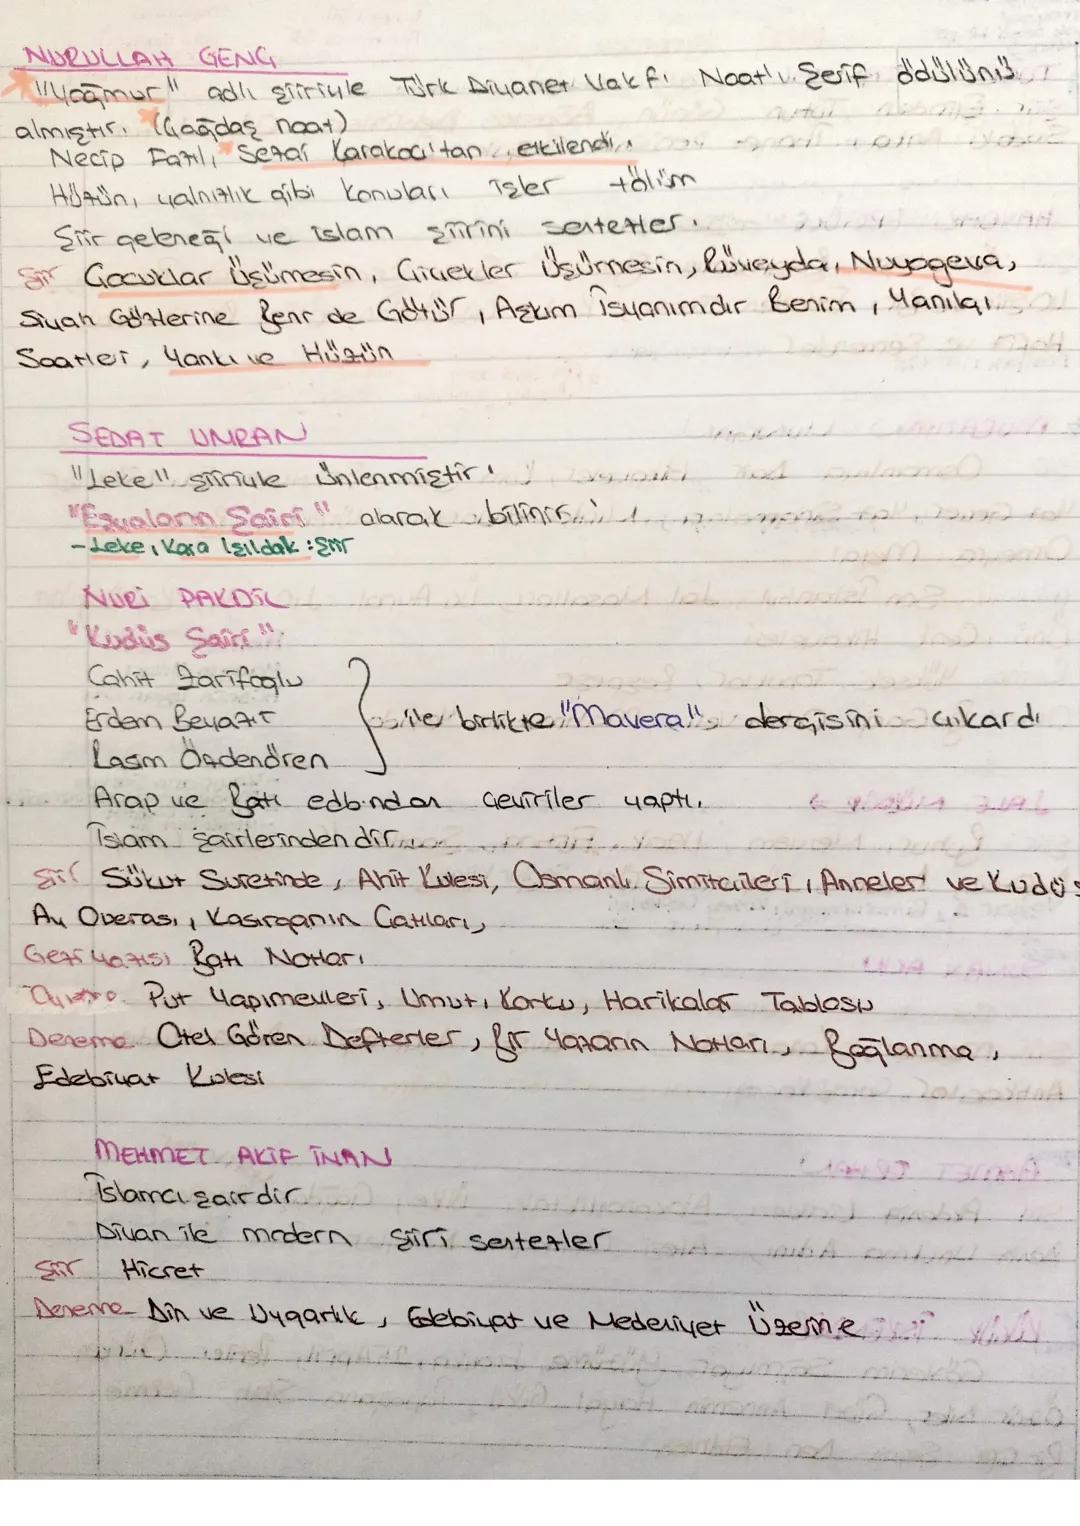 NURULLAH GENÇ
"Yağmur" adlı şiiriyle Türk Diyanet Vakfı Naat'ı Şerif ödülünü
almıştır. (Çağdaş naat)
Necip Fazıl, Sezai Karakoç'tan etkilendi.
Hüzün, yalnızlık gibi konuları işler +ölüm
Şiir geleneği ve islam şiirini sentezler.
Şiir Çocuklar Üşümesin, Çiçekler Üşümesin, Rüveyda, Nuyageva,
Siyah Gözlerine Beni de Götür, Aşkım İsyanımdır Benim, Yanılgı
Saatleri, Yankı ve Hüzün
SEDAT UMRAN
"Leke" şiiriyle ünlenmiştir.
"Eşyaların Şairi" olarak bilinir.
-Leke, Kara Işıldak :Şiir
NURİ PAKDİL
"Kudüs Şairi"
Cahit Zarifoğlu
Erdem Beyazıt
ile birlikte "Mavera" dergisini çıkardı
Rasim Özdenören
Arap ve Batı edb.ndan çeviriler yaptı.
İslam şairlerindendir.
Şiir Sükut Suretinde, Ahit Kulesi, Osmanlı Simitçileri, Anneler ve Kudüs
Ay Operası, Kasırganın Çatıları,
Gezi yazısı Batı Notları
Tiyatro Put Yapımevleri, Umut, Korku, Harikalar Tablosu
Deneme Otel Gören Defterler, Bir Yazarın Notları, Bağlanma,
Edebiyat Kulesi
MEHMET AKİF İNAN
İslamcı şairdir
Divan ile modern şiiri sentezler
Şiir Hicret
Deneme Din ve Uygarlık, Edebiyat ve Medeniyet Üzerine